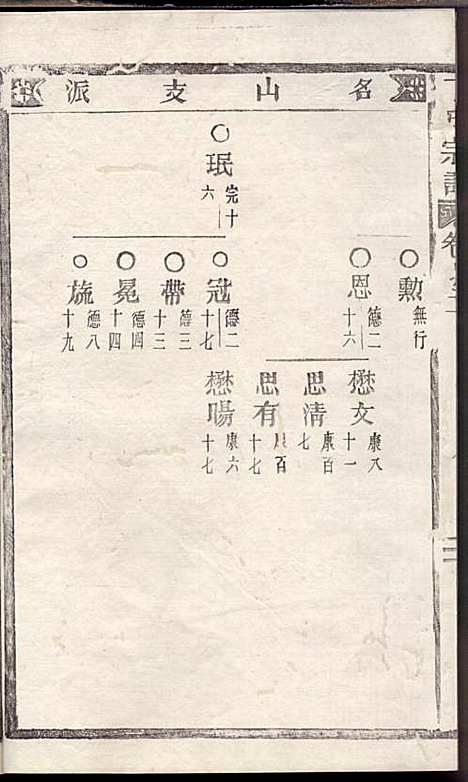 名山支派
珉
完十六
勳
無行
恩
德二十六
冠
德二十七
帶
德三十三
冕
德四十四
旒
德八十九
懋文
康八十一
思清
康百七
思有
康百十七
懋暘
康六十七
宗譜
卷